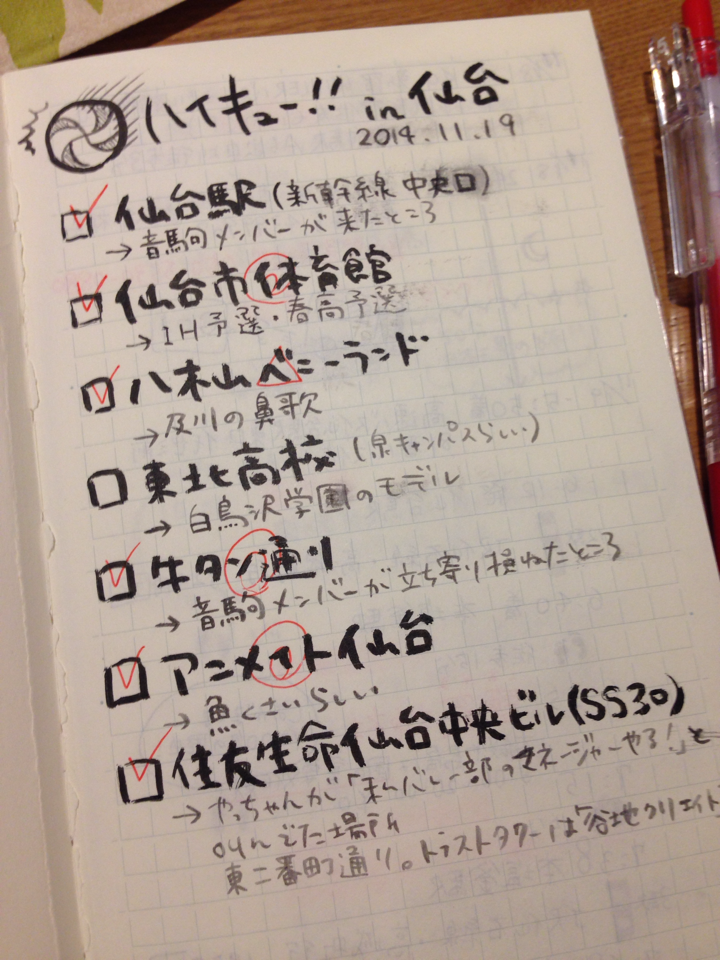 ハイキュー!! in 仙台
2014.11.19
仙台駅(新幹線 中央口)
→ 音駒メンバーが来たところ
仙台市体育館
→ IH予選・春高予選
八木山ベニーランド
→ 及川の鼻歌
東北高校(泉キャンパスらしい)
→ 白鳥沢学園のモデル
牛タン通り
→ 音駒メンバーが立ち寄り損ねたところ
アニメイト仙台
→ 魚くさいらしい
住友生命仙台中央ビル(SS30)
→ やっちゃんが「私バレー部のマネージャーやる!」と
叫んでた場所
東二番町通り。トラストタワーは「谷地クリエイト